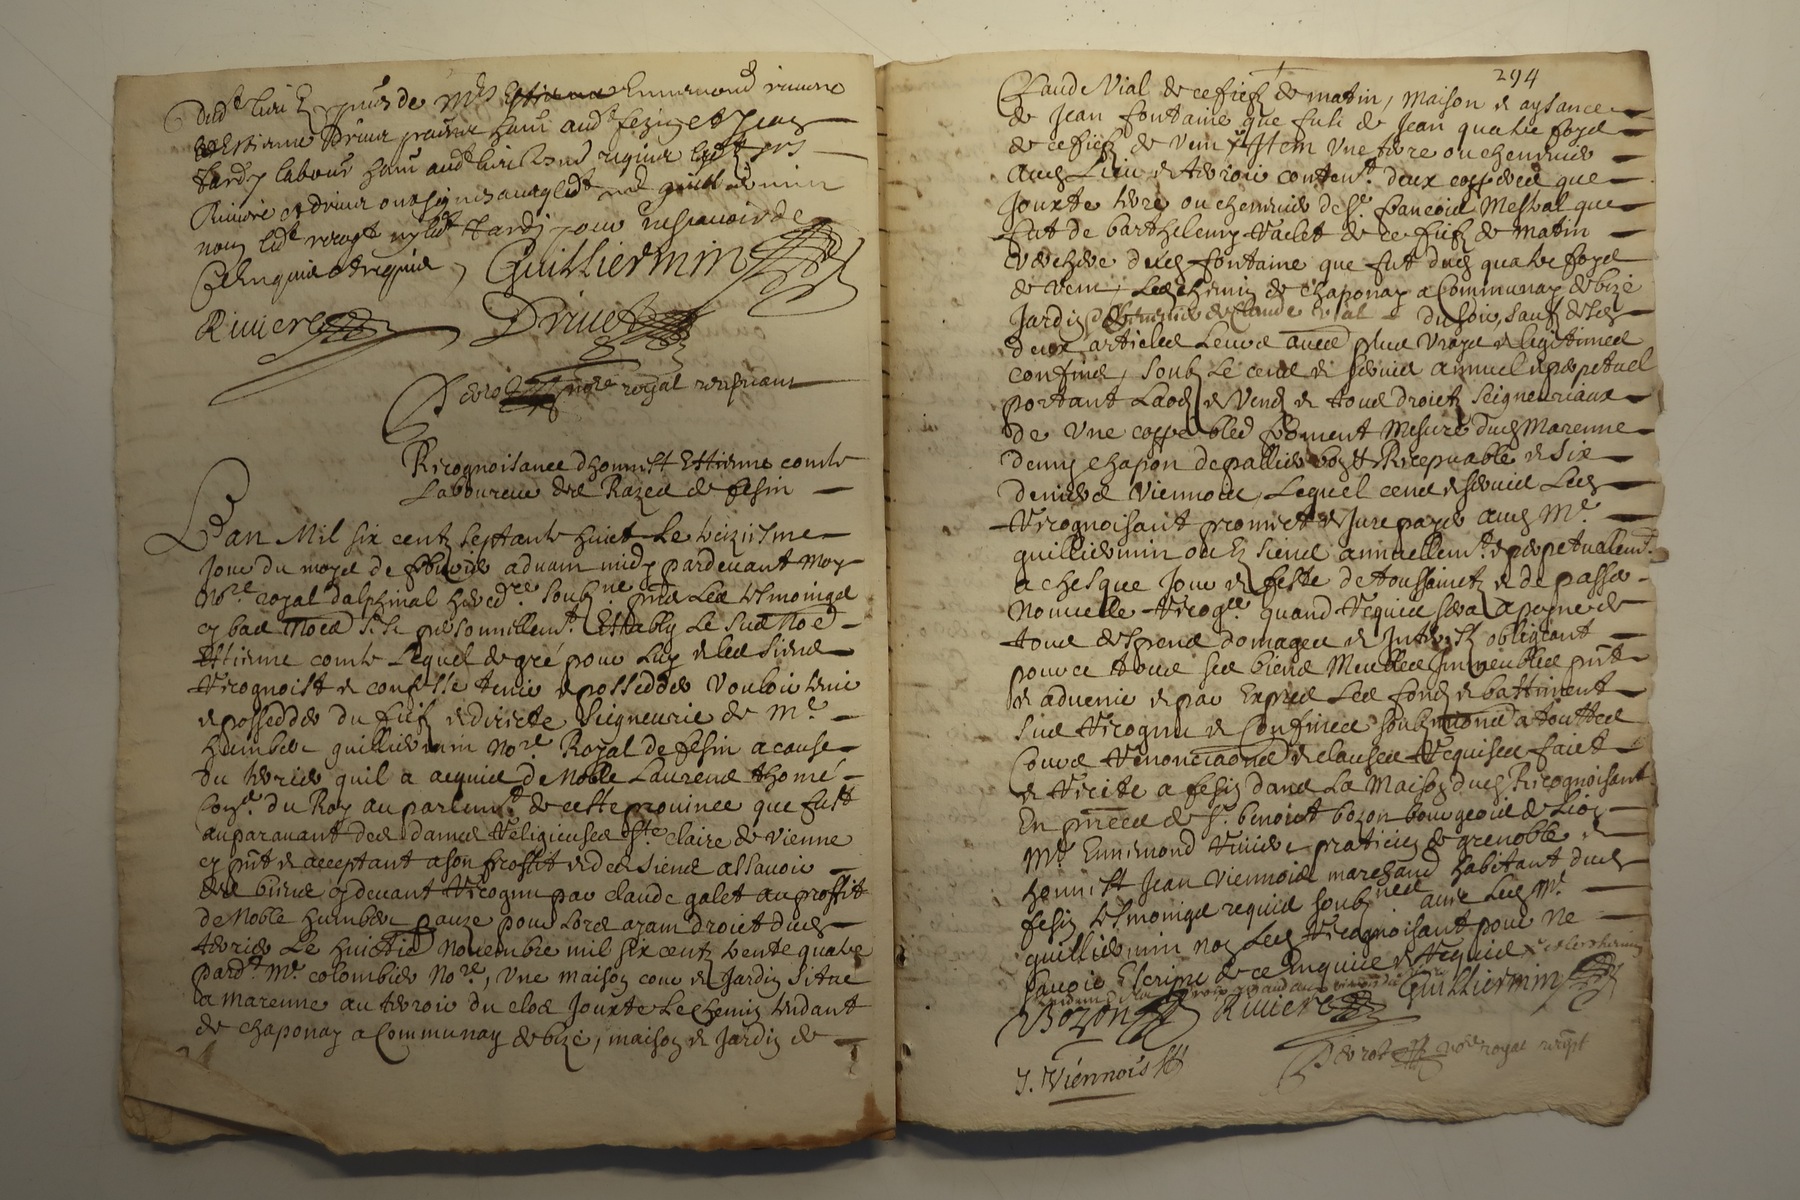 dud lieu & pns de Me Ennemond riviere
& Estienne Drivet praticien habit aud fezin et Jean
Tardy labour habit aud lieu tesmoins requis lesd srs
Riviere et drivet ont signez avec led me guilliermin
non led recogt ny led Tardy pour ne sçavoir de
ce enquis et requis, Guilliermin
Riviere Drivet
Derot nore royal recepvant
Recognoisance dhonnest Estienne comte
Laboureur des Razes de fesin
Lan Mil six centz septante huict Le treiziesme
Jour du moys de febvrier advant midy pardevant Moy
Nore royal dalphinal heredre soubzne pnts Les tesmoingz
cy bas Noes s'est personnellemt Estably Le susnoe
Estienne comte Lequel de gré pour Luy et les siens
Recognoist et confesse tenir et posseder vouloir tenir
et posseder du fief et directe seigneurie de Me
humbert guilliermin Nore Royal de fesin a cause
du terrier quil a acquis de Noble Laurens thomé
Coner du Roy au parlemt de ceste province que fust
auparavant des dames Religieuses Ste claire de vienne
cy pnt et acceptant a son proffit et des siens assavoir
des biens cydevant Recognu par claude galet au proffit
de Noble humbert pauze pour Lors ayant droict dud
terrier Le huictie Novembre mil six centz trente quatre
pardt Me colombier Nore, Une maison cour et Jardin situé
a marenne au terroir du clos Jouxte Le chemin tendant
de chaponay a Communay de bize, maison et Jardin de
294
Claude Vial de ce fief de matin, maison et aysances
de Jean fontaine que fust de Jean quatre foyes
de ce fief de vent Item Une terre ou chenevier
aud Lieu et terroir content deux coppees que
Jouxte terre ou chenevier de Sr francois Mesval que
fut de barthelemy Vaclet de ce fief de matin
verchere dud fontaine que fut dud quatre foyes
de vent, Led chemin de chaponay a Communay de bize
Jardin & de Claude vial du soir, sauf desd
deux articles Leurs aues plus vrays et legitimes
confins, soubz Le cens et servis annuel et perpetuel
portant Laodz et vendz et tous droictz seigneuriaux
de Une coppe bled froment Mesure dud Marenne
demy chapon de paillier bon et Recepvable et six
deniers viennois, Lequel cens et servis Led
Recognoisant promet et Jure payer aud Me
guilliermin ou es siens annuellemt et perpetuellemt
a chesque Jour et feste de toussainctz et de passer
Nouvelle Recogce quand Requis sera a peyne de
tous despens domages et Interestz obligeant
pour ce tous ses biens Meubles Immeubles pnts
et advenir et par Expres Les fondz et battiment
sus Recognu et confines soubzmions a touttes
Cours Renonciaons et clauses Requises faict
et Recité a fesin dans La Maison dud Recognoisant
En pnce de Sr benoist bozon bourgeois de Lion
Me Ennemond Riviere praticien de grenoble et
honnest Jean viennois marchand habitant dud
fesin tesmoings requis soubznes avec Led Me
guilliermin non Led Recognoisant pour Ne
sçavoir Escripre de ce Enquis et Requis
Bozon Riviere Guilliermin
J. Viennois
Derot nore royal recept